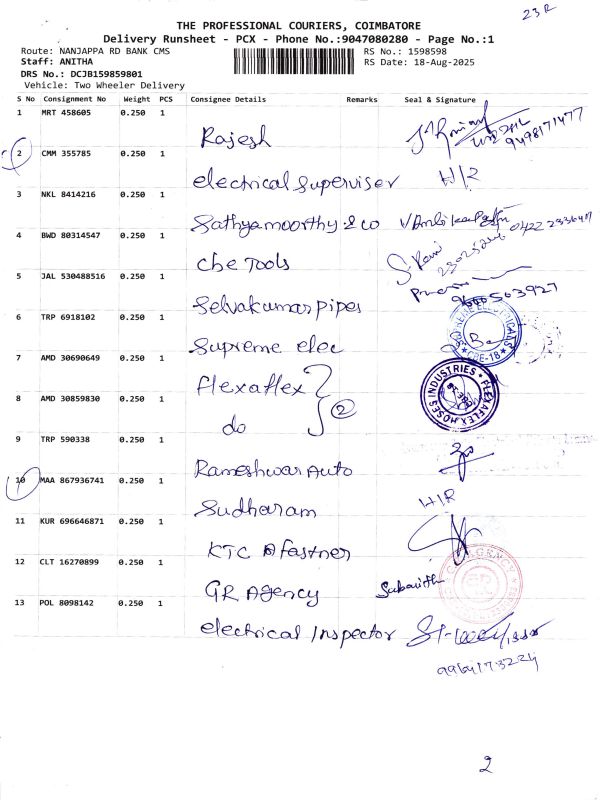 23R
THE PROFESSIONAL COURIERS, COIMBATORE
Delivery Runsheet - PCX - Phone No.:9047080280 - Page No.:1
Route: NANJAPPA RD BANK CMS RS No.: 1598598
Staff: ANITHA RS Date: 18-Aug-2025
DRS No.: DCJB159859801
Vehicle: Two Wheeler Delivery
S No Consignment No Weight PCS Consignee Details Remarks Seal & Signature
1 MRT 458605 0.250 1 Rajesh 9498171477
2 CMM 355785 0.250 1 electrical superviser H/R
3 NKL 8414216 0.250 1 Sathyamoorthy & co
4 BWD 80314547 0.250 1 Cbe Tools
5 JAL 530488516 0.250 1 Selvakumar pipes
6 TRP 6918102 0.250 1 Supreme elec CBE-18
7 AMD 30690649 0.250 1 Flexaflex FLEXAFLEX HOSES INDUSTRIES
8 AMD 30859830 0.250 1 do 2
9 TRP 590338 0.250 1 Rameshwar Auto
10 MAA 867936741 0.250 1 Sudharam H/R
11 KUR 696646871 0.250 1 KTC Fastner
12 CLT 16270899 0.250 1 GR Agency
13 POL 8098142 0.250 1 electrical Inspector
2